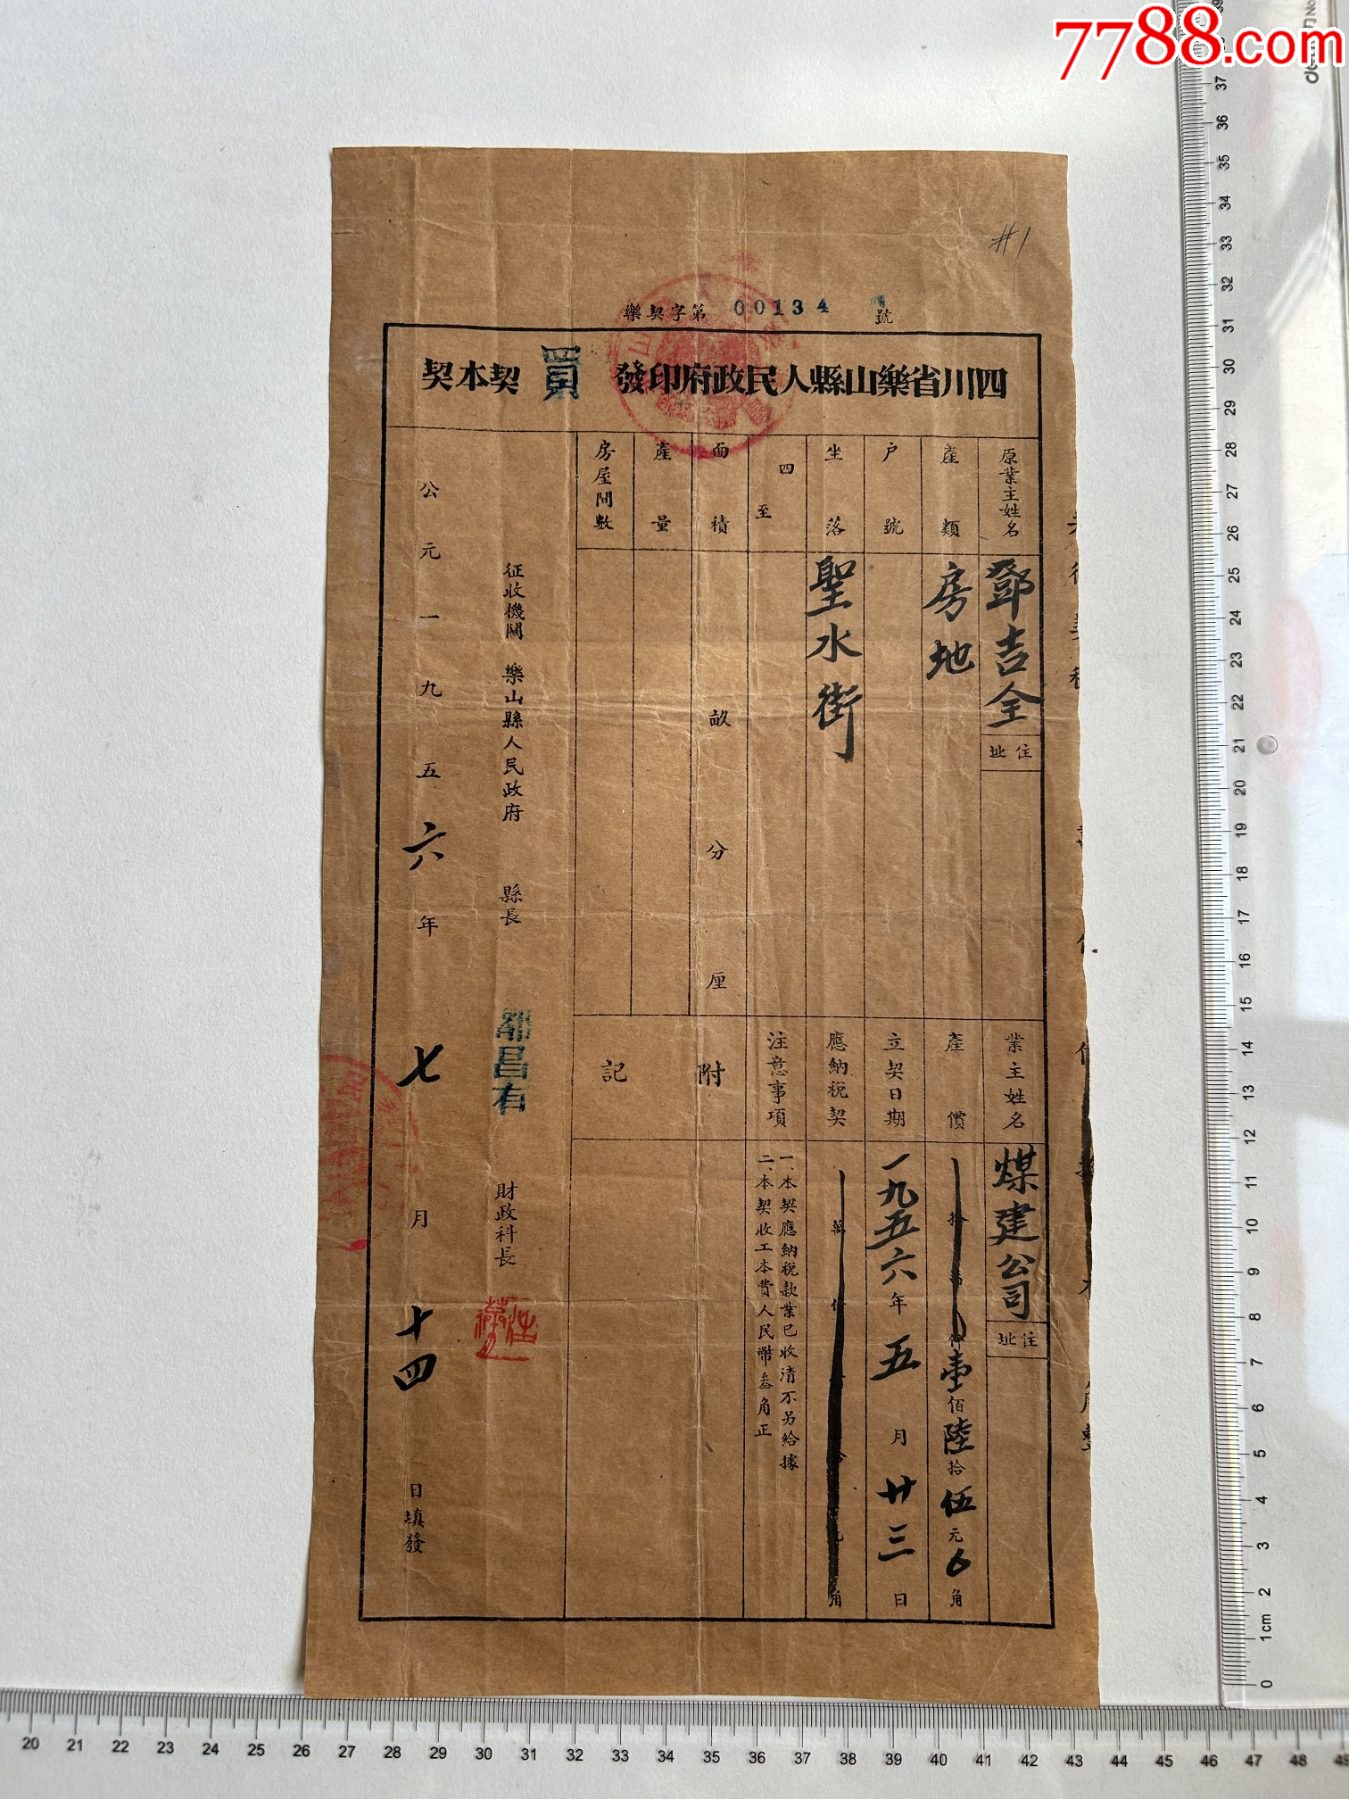 7788.com
#1
樂契字第 00134 號
四川省樂山縣人民政府印發 買契本契
原業主姓名 鄧吉全 住址
產類 房地
戶號
坐落 聖水街
四至
面積 畝 分 厘
產量
房屋間數
業主姓名 煤建公司 住址
產價 拾 萬 仟 壹佰陸拾伍元6角
立契日期 一九五六年五月廿三日
應納稅契 萬 仟 角
注意事項
一、本契應納稅款業已收清不另給據
二、本契收工本費人民幣叁角正
附記
征收機關 樂山縣人民政府 縣長 鄒昌有 財政科長
公元一九五六年七月十四日填發